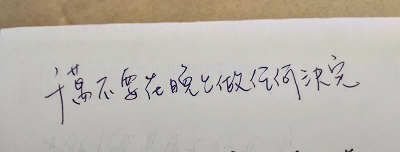 千萬不要在晚上做任何決定